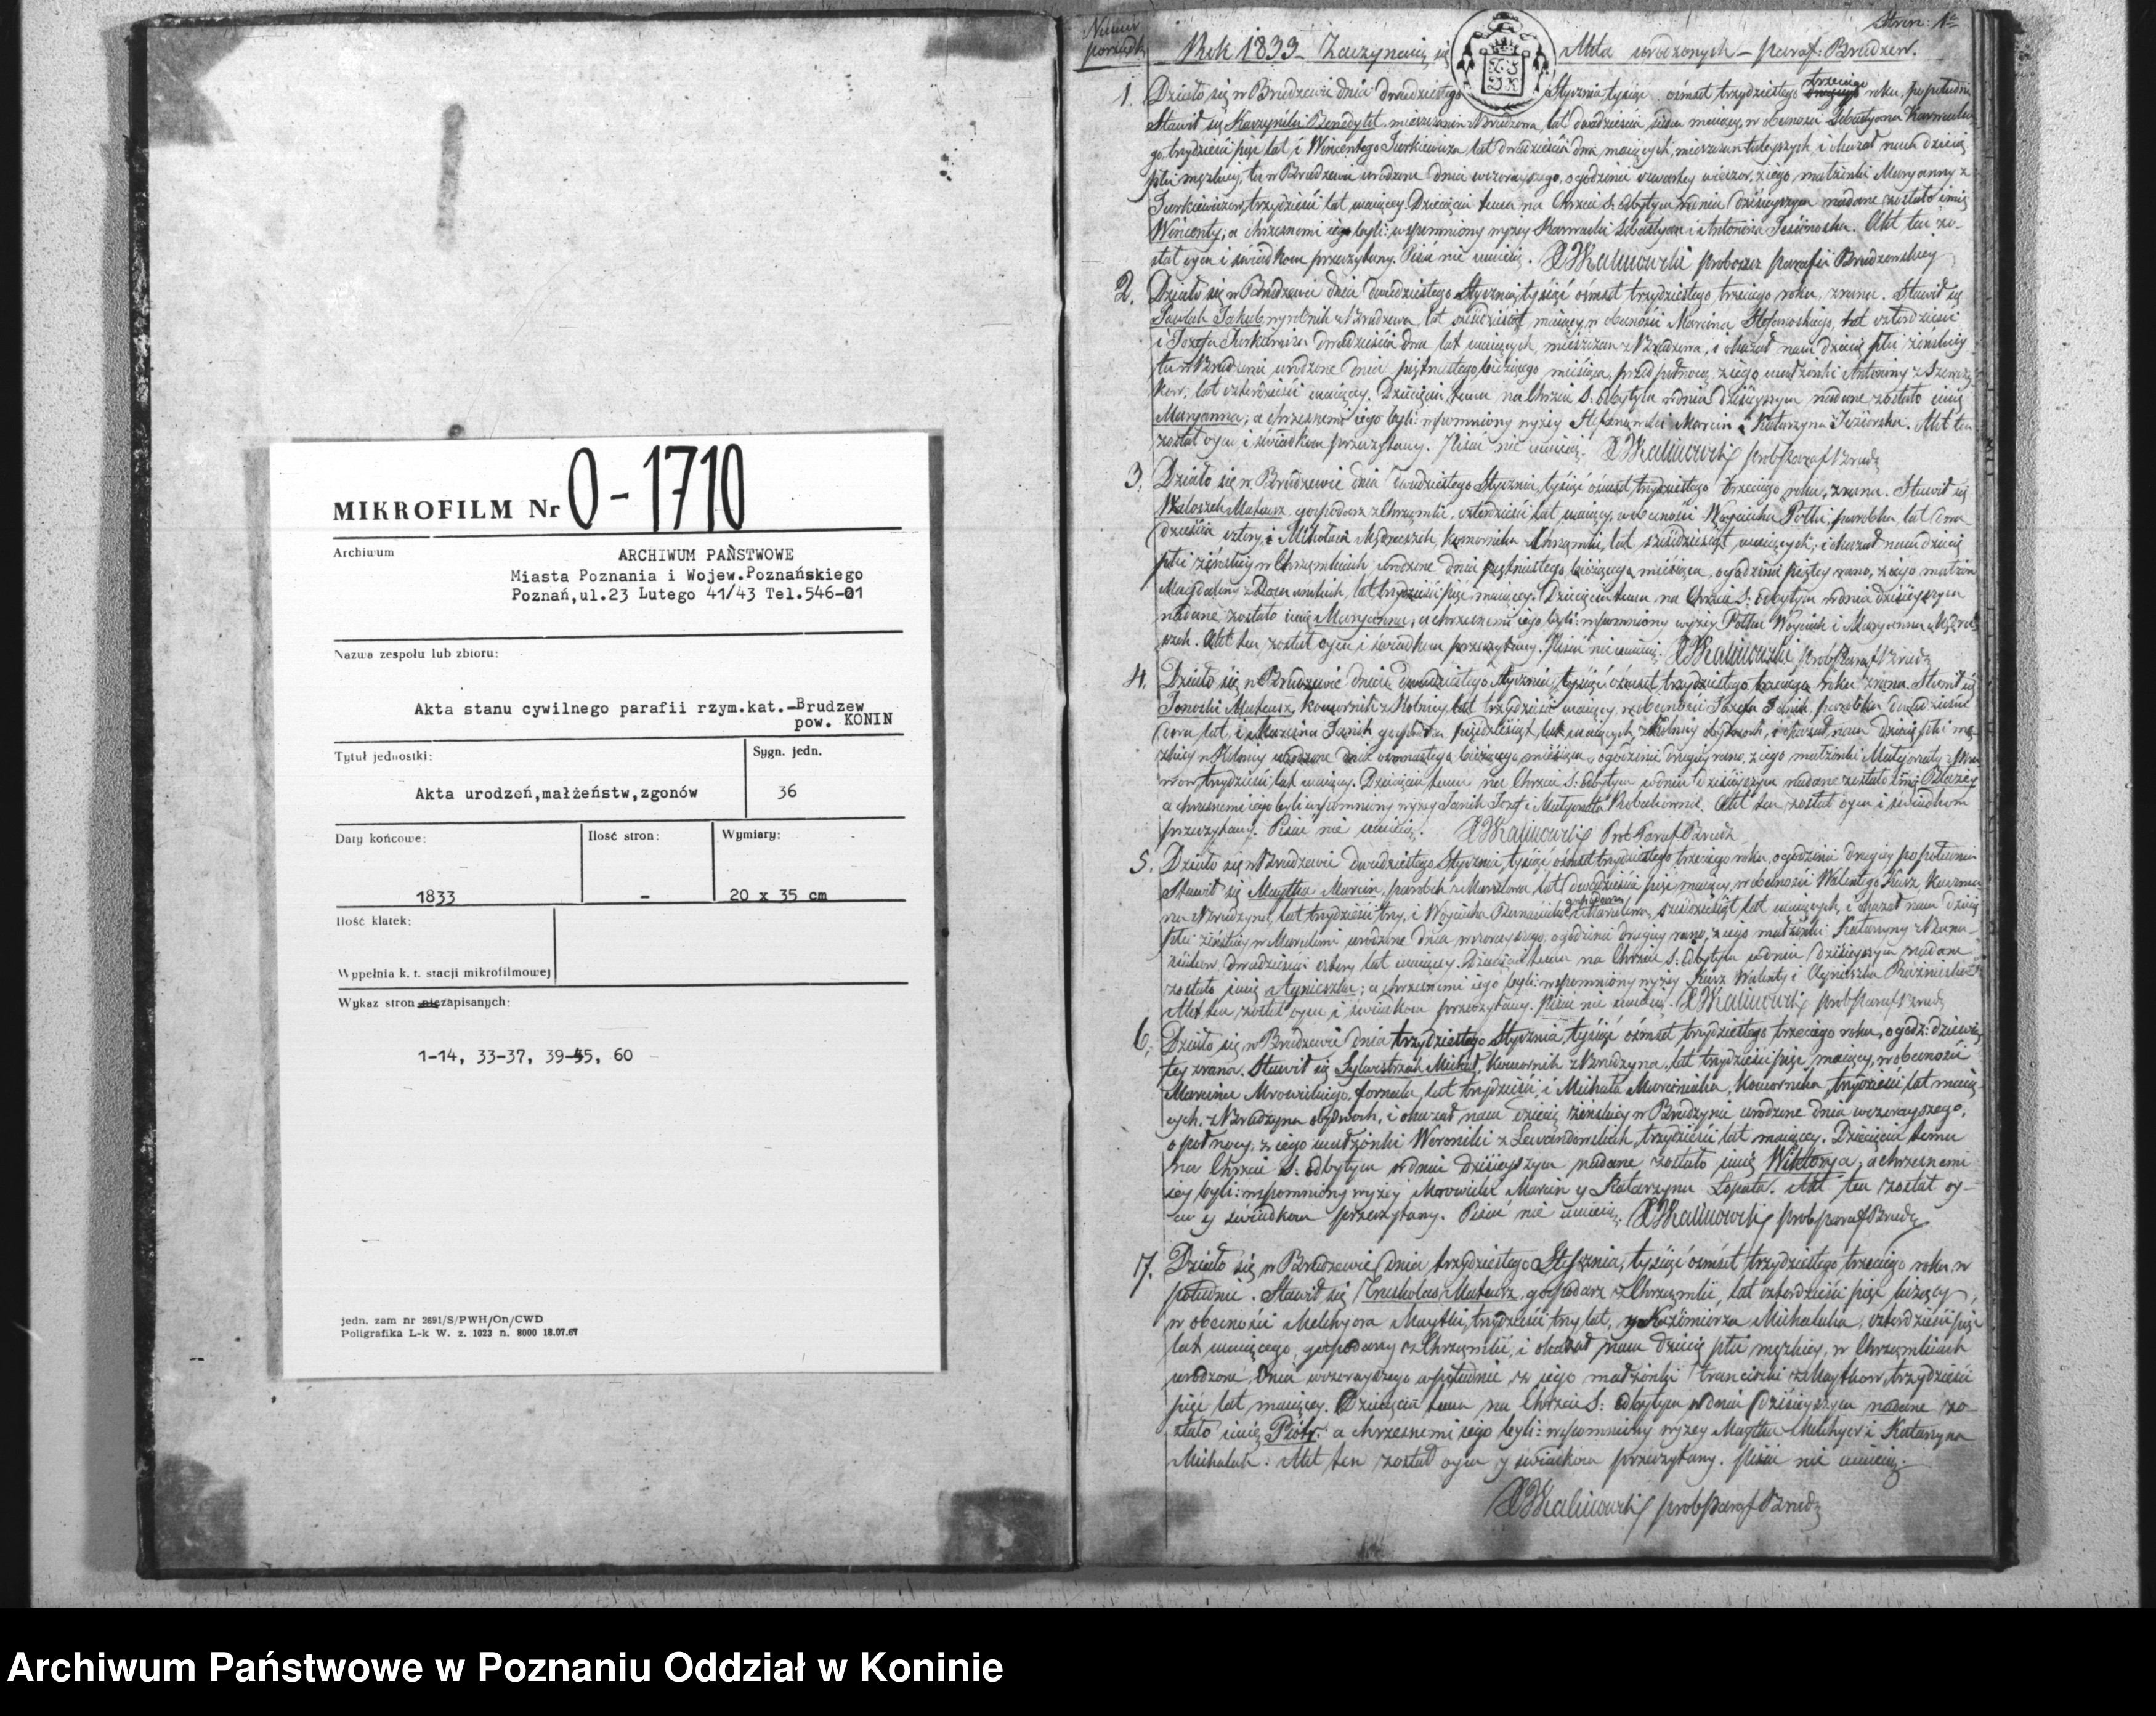 MIKROFILM Nr O-1710
Archiwum
ARCHIWUM PAŃSTWOWE
Miasta Poznania i Wojew.Poznańskiego
Poznań,ul.23 Lutego 41/43 Tel.546-01
Nazwa zespołu lub zbioru:
Akta stanu cywilnego parafii rzym.kat.-Brudzew
pow. KONIN
Tytuł jednostki:
Sygn. jedn.
Akta urodzeń,małżeństw,zgonów
36
Daty końcowe:
Ilość stron:
Wymiary:
1833
-
20 x 35 cm
Ilość klatek:
Wypełnia k. t. stacji mikrofilmowej
Wykaz stron niezapisanych:
1-14, 33-37, 39-45, 60
jedn. zam nr 2691/S/PWH/On/CWD
Poligrafika Ł-k W. z. 1023 n. 8000 18.07.67
Numer
porządk
Stron: 1
Rok 1833 Zaczynaią się Akta urodzonych - paraf: Brudzew.
1. Działo się w Brudzewie dnia dwudziestego Stycznia tysiąc ośmset trzydziestego trzeciego roku, po południu
Stawił się Benedykt mieszczanin z Brudzewa, lat dwadzieścia maiący, w obecności Sebastyana
go, trzydzieści pięć lat, i Wincentego Turkiewicza lat dwadzieścia dwa maiących, mieszczan tuteyszych, i okazał nam dziecię
płci męzkiey, tu w Brudzewie urodzone dnia wczorayszego, o godzinie czwartey wieczor, z iego małżonki Maryanny z
Turkiewiczow, trzydzieści lat maiącey. Dziecięciu temu na Chrzcie S: odbytym w dniu dzisieyszym nadane zostało imię
Wincenty, a chrzesnemi iego byli: wspomniony wyżey Sebastyan i Antonina. Akt ten zo-
stał oycu i świadkom przeczytany. Pisać nie umieią. X Kalinowski proboszcz parafii Brudzewskiey
2. Działo się w Brudzewie dnia dwudziestego Stycznia, tysiąc ośmset trzydziestego trzeciego roku, zrana. Stawił się
Jakub wyrobnik z Brudzewa, lat maiący, w obecności Marcina Stefanoskiego, lat czterdzieści
i Jozefa Turkiewicza dwadzieścia dwa lat maiących, mieszczan z Brudzewa, i okazał nam dziecię płci żeńskiey
tu w Brudzewie urodzone dnia piętnastego bieżącego miesiąca, przed północą, z iego małżonki Antoniny z
lat czterdzieści maiącey. Dziecięciu temu na Chrzcie S: odbytym w dniu dzisieyszym nadane zostało imię
Maryanna, a chrzesnemi iego byli: wspomniony wyżey Marcin i Katarzyna Jeziorska. Akt ten
został oycu i świadkom przeczytany. Pisać nie umieią. X Kalinowski prob paraf Brudz
3. Działo się w Brudzewie dnia dwudziestego Stycznia, tysiąc ośmset trzydziestego trzeciego roku, zrana. Stawił się
Mateusz, gospodarz, czterdzieści lat maiący, w obecności Woyciecha Polki, parobka, lat dwa-
dzieścia cztery, i Mikołaia, komornika, lat sześćdziesiąt maiących, i okazał nam dziecię
płci żeńskiey urodzone dnia piętnastego bieżącego miesiąca, o godzinie piątey rano, z iego małżon
Magdaleny, lat trzydzieści pięć maiącey. Dziecięciu temu na Chrzcie S: odbytym w dniu dzisieyszym
nadane zostało imię Maryanna, a chrzesnemi iego byli: wspomniony wyżey Polka Woyciech i Maryanna
Akt ten został oycu i świadkom przeczytany. Pisać nie umieią. X Kalinowski prob Paraf Brudz
4. Działo się w Brudzewie dnia dwudziestego Stycznia, tysiąc ośmset trzydziestego trzeciego roku zrana. Stawił się
Mateusz, komornik, lat trzydzieści maiący, w obecności Jozefa Janik, parobka dwadzieścia
dwa lat, i Marcina Janik gospodarza pięćdziesiąt lat maiących, i okazał nam dziecię płci mę-
zkiey urodzone dnia ośmnastego bieżącego miesiąca, o godzinie drugiey rano, z iego małżonki Małgorzaty
trzydzieści lat maiącey. Dziecięciu temu na Chrzcie S: odbytym w dniu dzisieyszym nadane zostało imię Błażey
a chrzesnemi iego byli wspomniony wyżey Janik Jozef i Małgorzata. Akt ten został oycu i świadkom
przeczytany. Pisać nie umieią. X Kalinowski Prob Paraf Brudz
5. Działo się w Brudzewie dwudziestego Stycznia, tysiąc ośmset trzydziestego trzeciego roku, o godzinie drugiey po południu
Stawił się Maytka Marcin, parobek, lat dwadzieścia pięć maiący, w obecności Walentego Kurz,
z Brudzyna, lat trzydzieści trzy, i Woyciecha gospodarza, sześćdziesiąt lat maiących, i okazał nam dziecię
płci żeńskiey urodzone dnia wczorayszego, o godzinie drugiey rano, z iego małżonki Katarzyny
dwadzieścia cztery lat maiącey. Dziecięciu temu na Chrzcie S: odbytym w dniu dzisieyszym nadane
zostało imię Agnieszka; a chrzesnemi iego byli: wspomniony wyżey Kurz Walenty i Agnieszka
Akt ten został oycu i świadkom przeczytany. Pisać nie umieią. X Kalinowski prob Paraf Brudz
6. Działo się w Brudzewie dnia trzydziestego Stycznia, tysiąc ośmset trzydziestego trzeciego roku, o godz: dziewią-
tey zrana. Stawił się Sylwestrzak Michał, komornik z Brudzyna, lat trzydzieści pięć maiący, w obecności
Marcina Mrowickiego, fornala, lat trzydzieści, i Michała Marciniaka, komornika, trzydzieści lat maią-
cych, z Brudzyna obydwoch, i okazał nam dziecię żeńskiey w Brudzynie urodzone dnia wczorayszego,
o połnocy, z iego małżonki Weroniki z Lewandowskich, trzydzieści lat maiącey. Dziecięciu temu
na Chrzcie S: odbytym w dniu dzisieyszym nadane zostało imię Wiktorya, a chrzesnemi
iey byli: wspomniony wyżey Mrowicki Marcin y Katarzyna Łopata. Akt ten został oy-
cu y świadkom przeczytany. Pisać nie umieią. X Kalinowski prob paraf Brudz
7. Działo się w Brudzewie dnia trzydziestego Stycznia, tysiąc ośmset trzydziestego trzeciego roku, w
południe. Stawił się Truskolas Mateusz, gospodarz, lat czterdzieści pięć liczący,
w obecności Melchyora Maytki, trzydzieści trzy lat, y Kazimierza Michalaka, czterdzieści pięć
lat maiącego, gospodarzy, i okazał nam dziecię płci męzkiey,
urodzone dnia wczorayszego w południe z iego małżonki Franciszki z Maytkow trzydzieści
pięć lat maiącey. Dziecięciu temu na Chrzcie S: odbytym w dniu dzisieyszym nadane zo-
stało imię Piotr. a chrzesnemi iego byli: wspomniony wyżey Maytka Melchyor i Katarzyna
Michalak. Akt ten został oycu y świadkom przeczytany. Pisać nie umieią.
X Kalinowski prob Paraf Brudz
Archiwum Państwowe w Poznaniu Oddział w Koninie